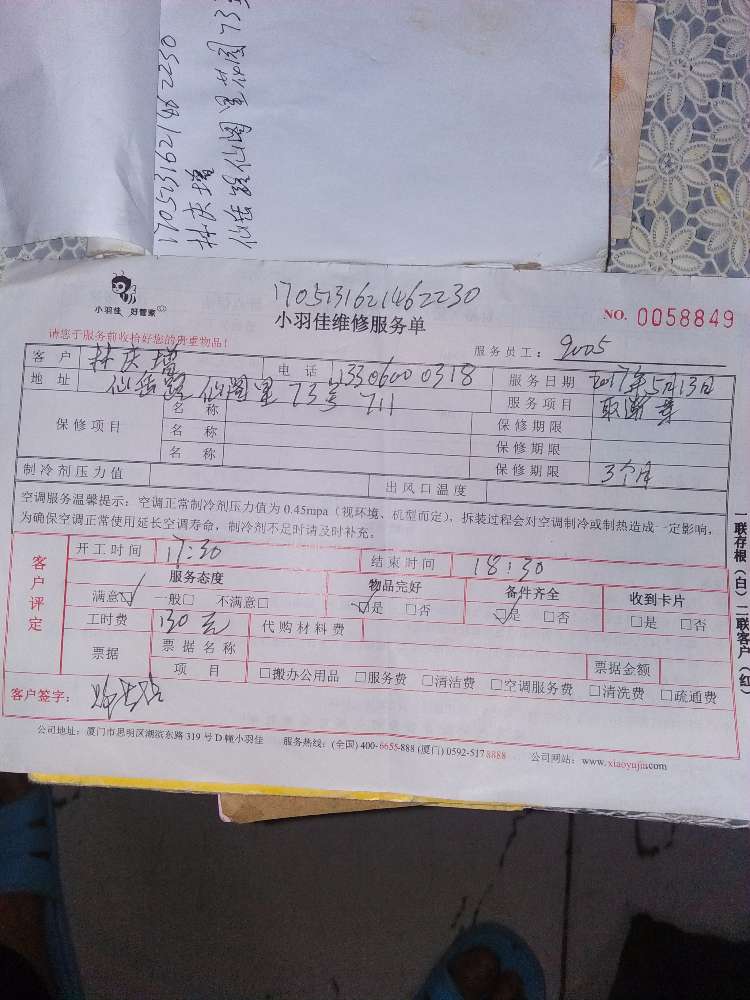 1705131621462230
林庆增
仙岳路仙阁里73
1705131621462230
小羽佳 好管家
小羽佳维修服务单
NO. 0058849
请您于服务前收拾好您的贵重物品!
服务员工: 9005
客户 林庆增 电话 13306000318 服务日期 2017年5月13日
地址 仙岳路仙阁里73号711 服务项目
保修项目 名称 保修期限
名称 保修期限
名称 保修期限 3个月
制冷剂压力值 出风口温度
空调服务温馨提示:空调正常制冷剂压力值为0.45mpa(视环境、机型而定),拆装过程会对空调制冷或制热造成一定影响,
为确保空调正常使用延长空调寿命,制冷剂不足时请及时补充。
客户评定
开工时间 17:30 结束时间 18:30
服务态度 物品完好 备件齐全 收到卡片
满意☑ 一般□ 不满意□ ☑是 □否 ☑是 □否 □是 □否
工时费 130元 代购材料费
票据 票据名称 票据金额
项目 □搬办公用品 □服务费 □清洁费 □空调服务费 □清洗费 □疏通费
客户签字:
公司地址:厦门市思明区湖滨东路319号D幢小羽佳 服务热线:(全国)400-6655-888 (厦门)0592-5178888 公司网站:www.xiaoyujia.com
一联存根(白)二联客户(红)